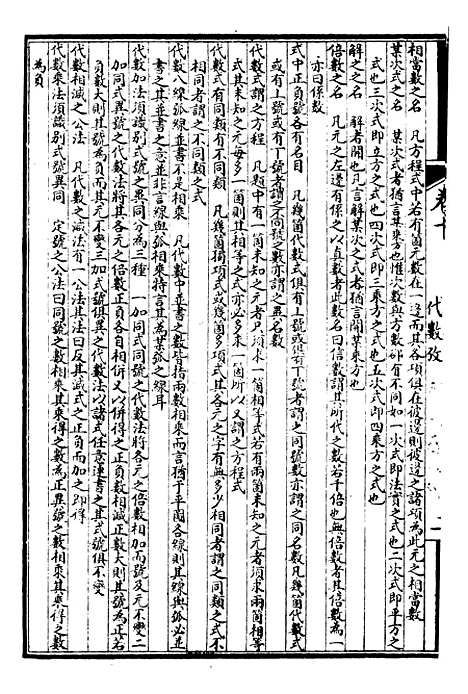 卷十
代數攷
二
相當數之名　凡方程式中若有箇元數在一邊而其各項俱在彼邊則彼邊之諸項為此元之相當數
某次式之名　某次式者猶言某乘方也惟次數與方數卻有不同如一次式即法實之式也二次式即平方之
式也三次式即立方之式也四次式即三乘方之式也五次式即四乘方之式也
解之之名　解者開也凡言解某次之式者猶言開某乘方也
倍數之名　凡元之左邊有係之以真數者此數名曰倍數謂其所代之數若干倍也無倍數者倍數為一
亦曰係數
式中正負號各有名目　凡幾箇代數式俱有丄號或俱有丅號者謂之同號數亦謂之同名數凡幾箇代數式
或有丄號或有丅號者謂之不同號之數亦謂之異名數
代數式謂之方程　凡題中有一箇未知之元者只須求一箇相等式若有兩箇未知之元者須求兩箇相等
式其未知之元毎多一箇則其相等之式亦必多求一箇所以又謂之方程式
代數式有同類有不同類　凡幾箇獨項式或幾箇多項式其各元之字有無多少相同者謂之同類之式不
相同者謂之不同類之式
代數八線弧線並書不是相乘　凡代數中並書之數皆指兩數相乘而言猶干平圜各線則其線與弧必並
書之其並書之意並非言線與弧相乘特言其為某弧之線耳
代數加法須識別式號之異同分為三種　一加同式同號之代數法將各元之倍數相加而號及元不變二
加同式異號之代數法將其各元之倍數正負各自相併又以併得之正負數相減正數大則其號為正若
負數大則其號為負而其元不變三加式號俱異之代數法以諸式任意連書之其式號俱不變
代數相減之公法　凡代數之減法有一公法其法曰反其減式之正負而加之即得
代數乘法須識別式號異同　定號之公法曰同號之數相乘其乘得之數為正異號之數相乘其乘得之數
為負